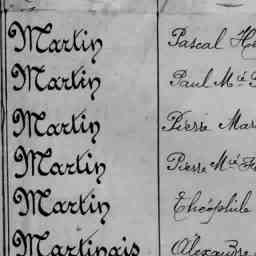 Martin Pascal He
Martin Paul Mié
Martin Pierre Mar
Martin Pierre Mié
Martin Théophile
Martinais Alexandre